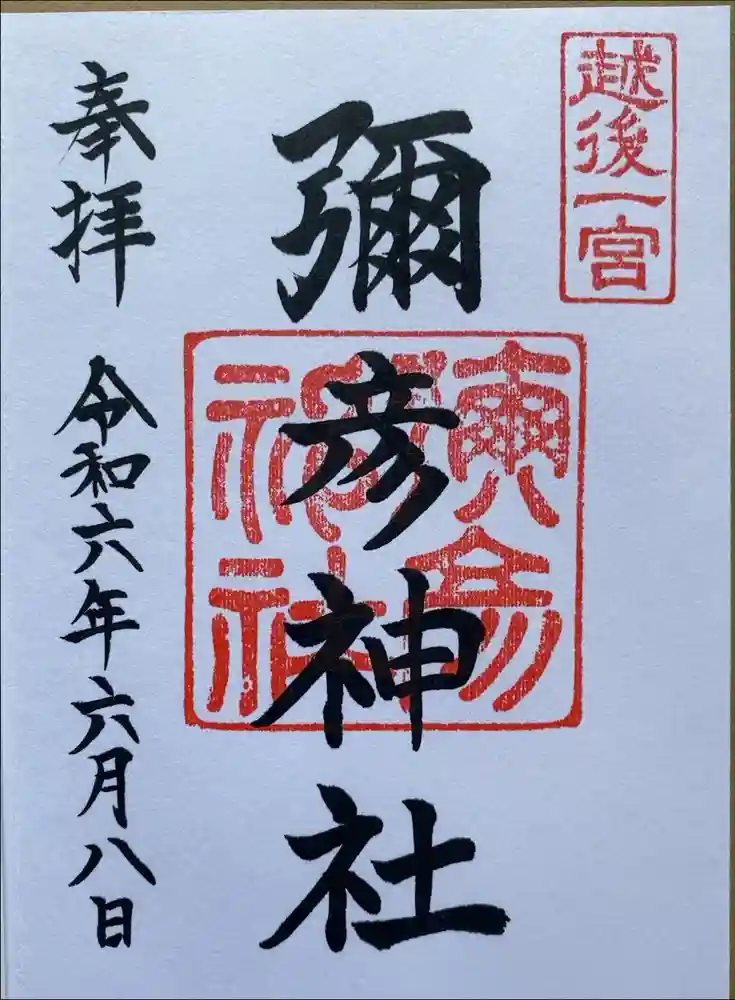 越後一宮
彌彦神社
彌彦
神社
奉拝
令和六年六月八日